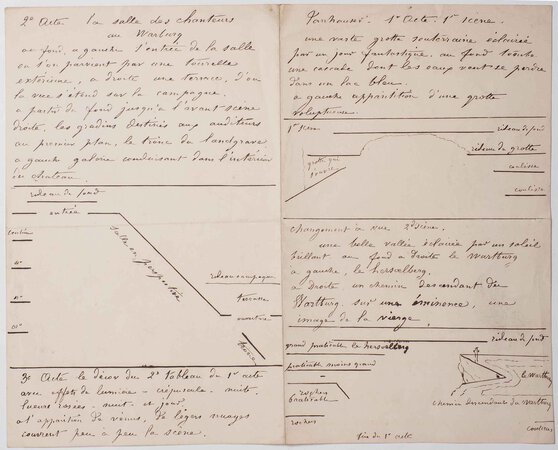 2e Acte la salle des chanteurs
au Warburg
au fond, a gauche l'entrée de la salle
ou l'on parvient par une tourelle
extérieure, a droite une terrace, d'ou
la vue s'etend sur la campagne.
a partir du fond jusqu'a l'avant scène
droite, les gradins destinés aux auditeurs
au premier plan, le trône du landgrave
a gauche galerie conduisant dans l'interieur
du chateau.
rideau de fond
entrée
salle en perspective
rideau campagne
terrasse
ouverture
trône
3e Acte le décor du 2e tableau du 1er acte
avec effets de lumiere - crépuscule - nuit.
lueurs roses - nuit et jour
et apparition de vénus. De légers nuages
couvrent peu à peu la scène.
Tanhouser. 1er Acte. 1re scène.
une vaste grotte souterraine éclairée
par un jour fantastique, au fond
une cascade dont les eaux vont se perdre
dans un lac bleu.
a gauche apparition d'une grotte
voluptueuse.
rideau de fond
rideau de grotte
grotte qui
s'ouvre
coulisse
coulisse
changement à vue 2de scène.
une belle vallée éclairée par un soleil
brillant au fond a droite le Wartburg
a gauche, le herselberg.
a droite un chemin descendant du
Wartburg sur une éminence, une
image de la vierge.
rideau de fond
grand praticable le herselberg
praticable moins grand
rochers
praticable
rochers
le Wartburg
chemin descendant du Wartburg
coulisses
fin du 1er acte